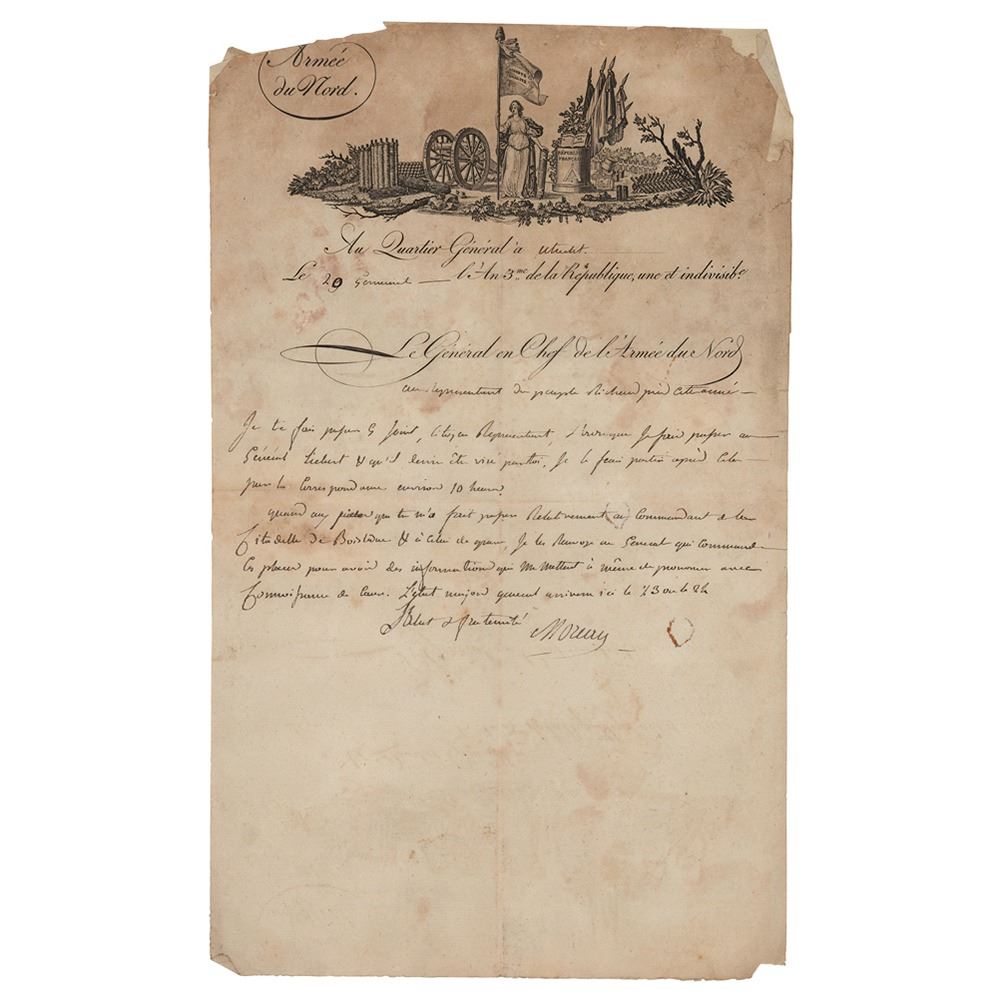 Armée
du Nord.
RÉPUBLIQUE
FRANÇAISE
Au Quartier Général à Utrecht.
Le 29 Germinal l'An 3.me de la République, une et indivisib.e
Le Général en Chef de l'Armée du Nord
au représentant du peuple Richard près cette armée
Je te fais passer ci joint, Citoyen Représentant, que je fais passer au
Général Liébert & qu'il devra être visé par toi, Je le ferai partir après cela
par la Correspondance environ 10 heures.
quand aux pièces que tu m'a fait passer Relativement au Commandant de la
Citadelle de Boisleduc & à celui de grave, Je les Renvoye au Général qui Commande
Ces places pour avoir des informations qui me mettent à même de prononcer avec
Connoissance de Cause. L'état major général arrivera ici le 23 ou le 24
Salut & fraternité
Moreau